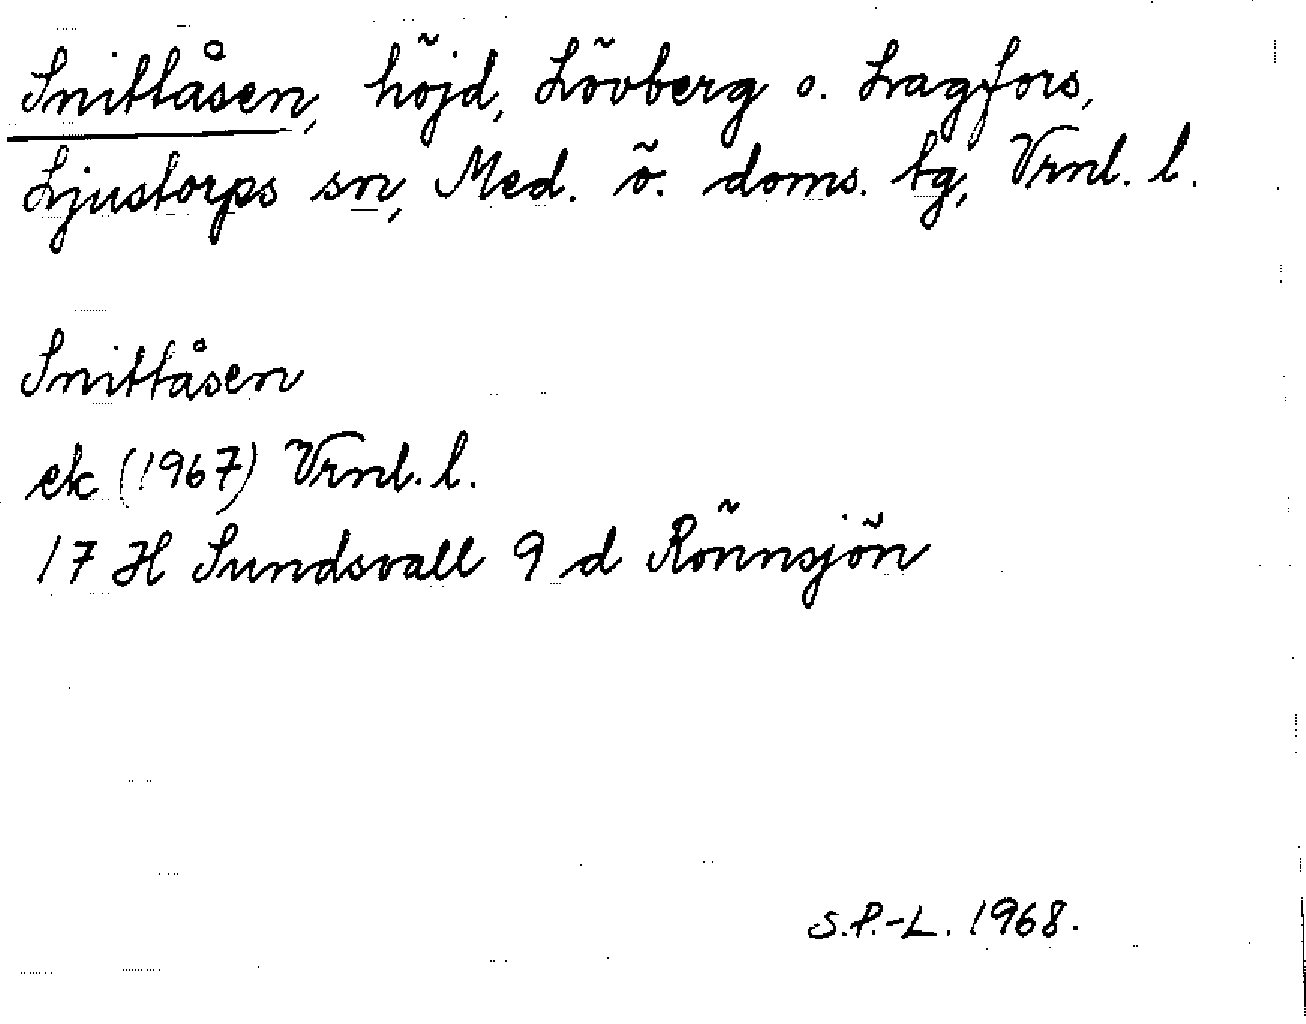 Snittåsen, höjd, Lövberg o. Lagfors,
Ljustorps sn, Med. ö. doms. tg, Vrnl. l.
Snittåsen
ek (1967) Vrnl. l.
17 H Sundsvall 9 d Rönnsjön
S.P.-L. 1968.